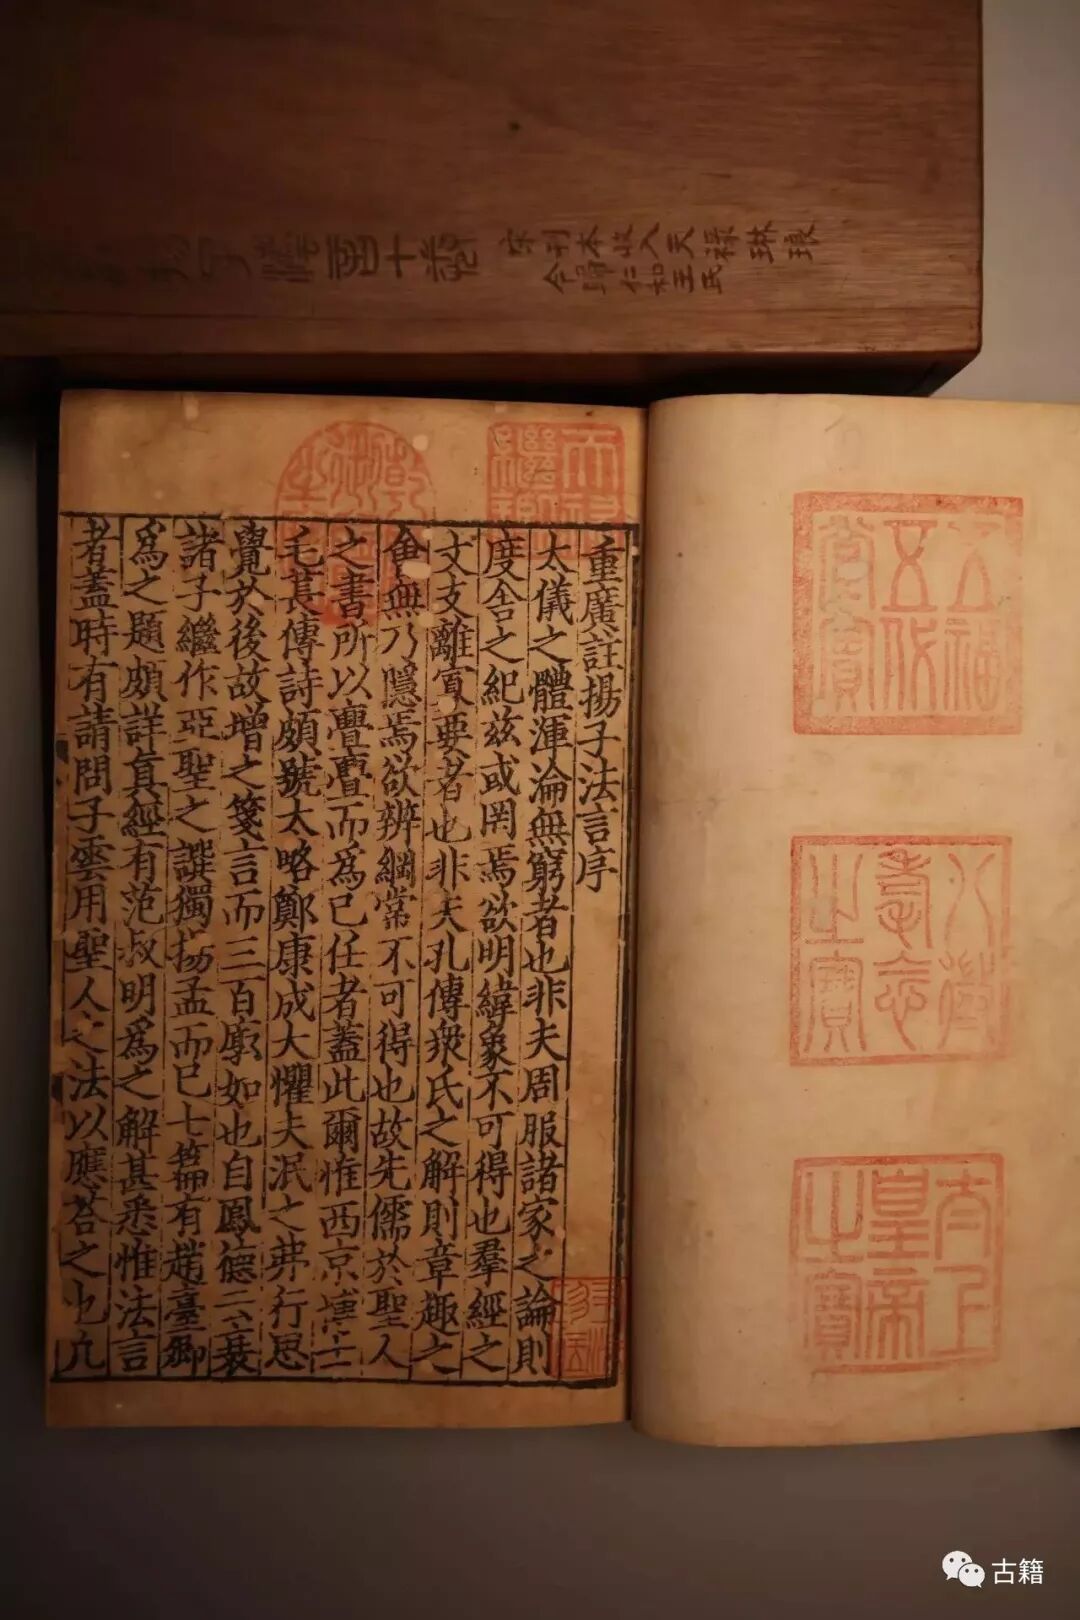 揚子法言十卷
宋刊本收入天祿琳琅
今歸仁和王氏
五福五代堂寶
八徵耄念之寶
太上皇帝之寶
乾隆御覽之寶
天祿繼鑑
重廣註揚子法言序
太儀之體渾淪無窮者也非夫周服諸家之論則
度舍之紀兹或罔焉欲明緯象不可得也羣經之
文支離寘要者也非夫孔傳衆氏之解則章趣之
會無乃隱焉欲辨綱常不可得也故先儒於聖人
之書所以亹亹而爲已任者蓋此爾惟西京博士
毛萇傳詩頗號太略鄭康成大懼夫泯之弗行思
覺於後故增之箋言而三百廓如也自鳳德二衰
諸子繼作亞聖之譔獨揚孟而已七篇有趙臺卿
爲之題頗詳眞經有范叔明爲之解甚悉惟法言
者蓋時有請問子雲用聖人之法以應荅之也凡
古籍